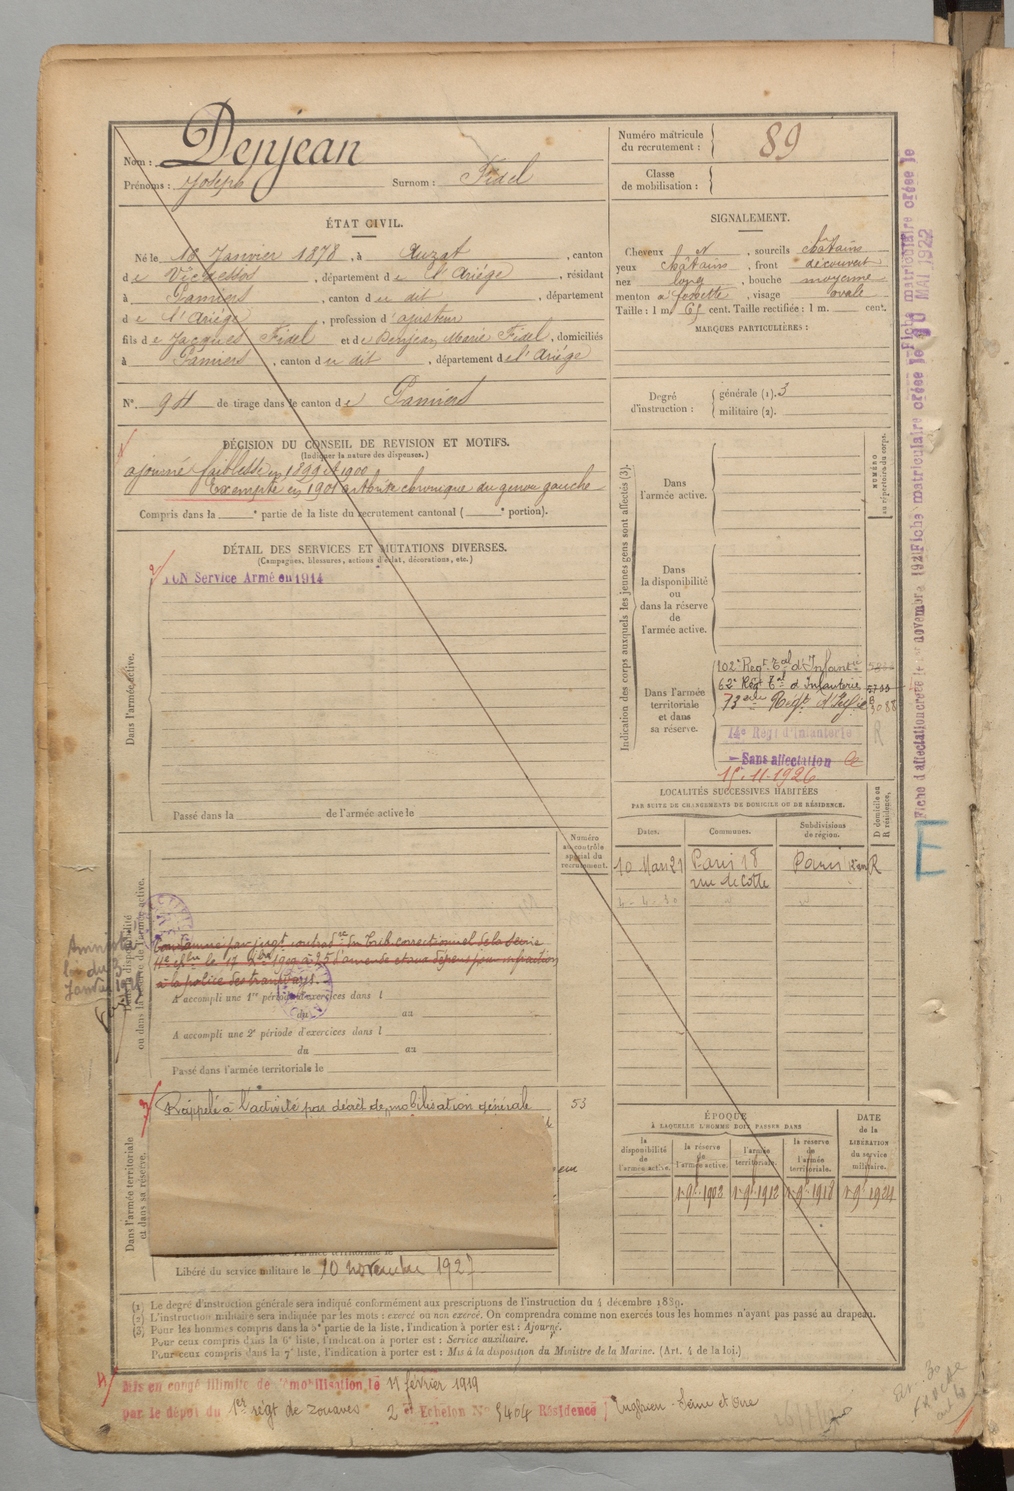 Nom : Denjean
Prénoms : Joseph Surnom : Fidel
Numéro matricule du recrutement : 89
Classe de mobilisation :
ÉTAT CIVIL.
Né le 18 Janvier 1878, à Auzat, canton
de Vicdessos, département de l'Ariège, résidant
à Pamiers, canton du dit, département
de l'Ariège, profession d'ajusteur
fils de Jacques Fidel et de Denjean Marie Fidel, domiciliés
à Pamiers, canton du dit, département de l'Ariège
N° 94 de tirage dans le canton de Pamiers
SIGNALEMENT.
Cheveux et , sourcils châtains
yeux châtains, front découvert
nez long, bouche moyenne
menton à fossette, visage ovale
Taille : 1 m. 65 cent. Taille rectifiée : 1 m. cent.
MARQUES PARTICULIÈRES :
Degré d'instruction : générale (1). 3
militaire (2).
DÉCISION DU CONSEIL DE REVISION ET MOTIFS.
(Indiquer la nature des dispenses.)
ajourné faiblesse en 1899 et 1900
Exempté en 1901 arthrite chronique du genou gauche
Compris dans la e partie de la liste du recrutement cantonal ( e portion).
DÉTAIL DES SERVICES ET MUTATIONS DIVERSES.
(Campagnes, blessures, actions d'éclat, décorations, etc.)
Service Armé en 1914
Dans l'armée active.
Passé dans la de l'armée active le
Numéro au contrôle spécial du recrutement.
Dans la disponibilité ou dans la réserve de l'armée active.
Amnistié
loi du 3
Janvier
Condamné par jugt contradre du Trib correctionnel de la Seine
à la police des tramways.
A accompli une 1re période d'exercices dans l
du au
A accompli une 2e période d'exercices dans l
du au
Passé dans l'armée territoriale le
Dans l'armée territoriale et dans sa réserve.
Rappelé à l'activité par décret de mobilisation générale
53
Libéré du service militaire le 10 novembre 1927
Indication des corps auxquels les jeunes gens sont affectés (3).
NUMÉRO au répertoire du corps.
Dans l'armée active.
Dans la disponibilité ou dans la réserve de l'armée active.
Dans l'armée territoriale et dans sa réserve.
102e Regt Tal d'Infantie
62e Régt Tal d'Infanterie
73eme Régt d'Infie
14e Régt d'Infanterie
R
Sans affectation
15.11.1926
LOCALITÉS SUCCESSIVES HABITÉES
PAR SUITE DE CHANGEMENTS DE DOMICILE OU DE RÉSIDENCE.
D domicile ou R résidence.
Dates. Communes. Subdivisions de région.
10 Mars 21 Paris 18 rue de Cotte Paris R
ÉPOQUE
À LAQUELLE L'HOMME DOIT PASSER DANS
DATE de la LIBÉRATION du service militaire.
la disponibilité de l'armée active. la réserve de l'armée active. l'armée territoriale. la réserve de l'armée territoriale.
1 9bre 1902 1 9bre 1912 1 9bre 1918 1 9bre 1924
(1) Le degré d'instruction générale sera indiqué conformément aux prescriptions de l'instruction du 4 décembre 1889.
(2) L'instruction militaire sera indiquée par les mots : exercé ou non exercé. On comprendra comme non exercés tous les hommes n'ayant pas passé au drapeau.
(3) Pour les hommes compris dans la 5e partie de la liste, l'indication à porter est : Ajourné.
Pour ceux compris dans la 6e liste, l'indication à porter est : Service auxiliaire.
Pour ceux compris dans la 7e liste, l'indication à porter est : Mis à la disposition du Ministre de la Marine. (Art. 4 de la loi.)
Mis en congé illimité de démobilisation, le 11 février 1919
par le dépôt du 1er régt de zouaves 2 Echelon N° 5404 Résidence Enghien - Seine et Oise
Fiche matriculaire créée le
MAI 1922
Fiche matriculaire créée le
Fiche d'affectation créée le 1er novembre 192